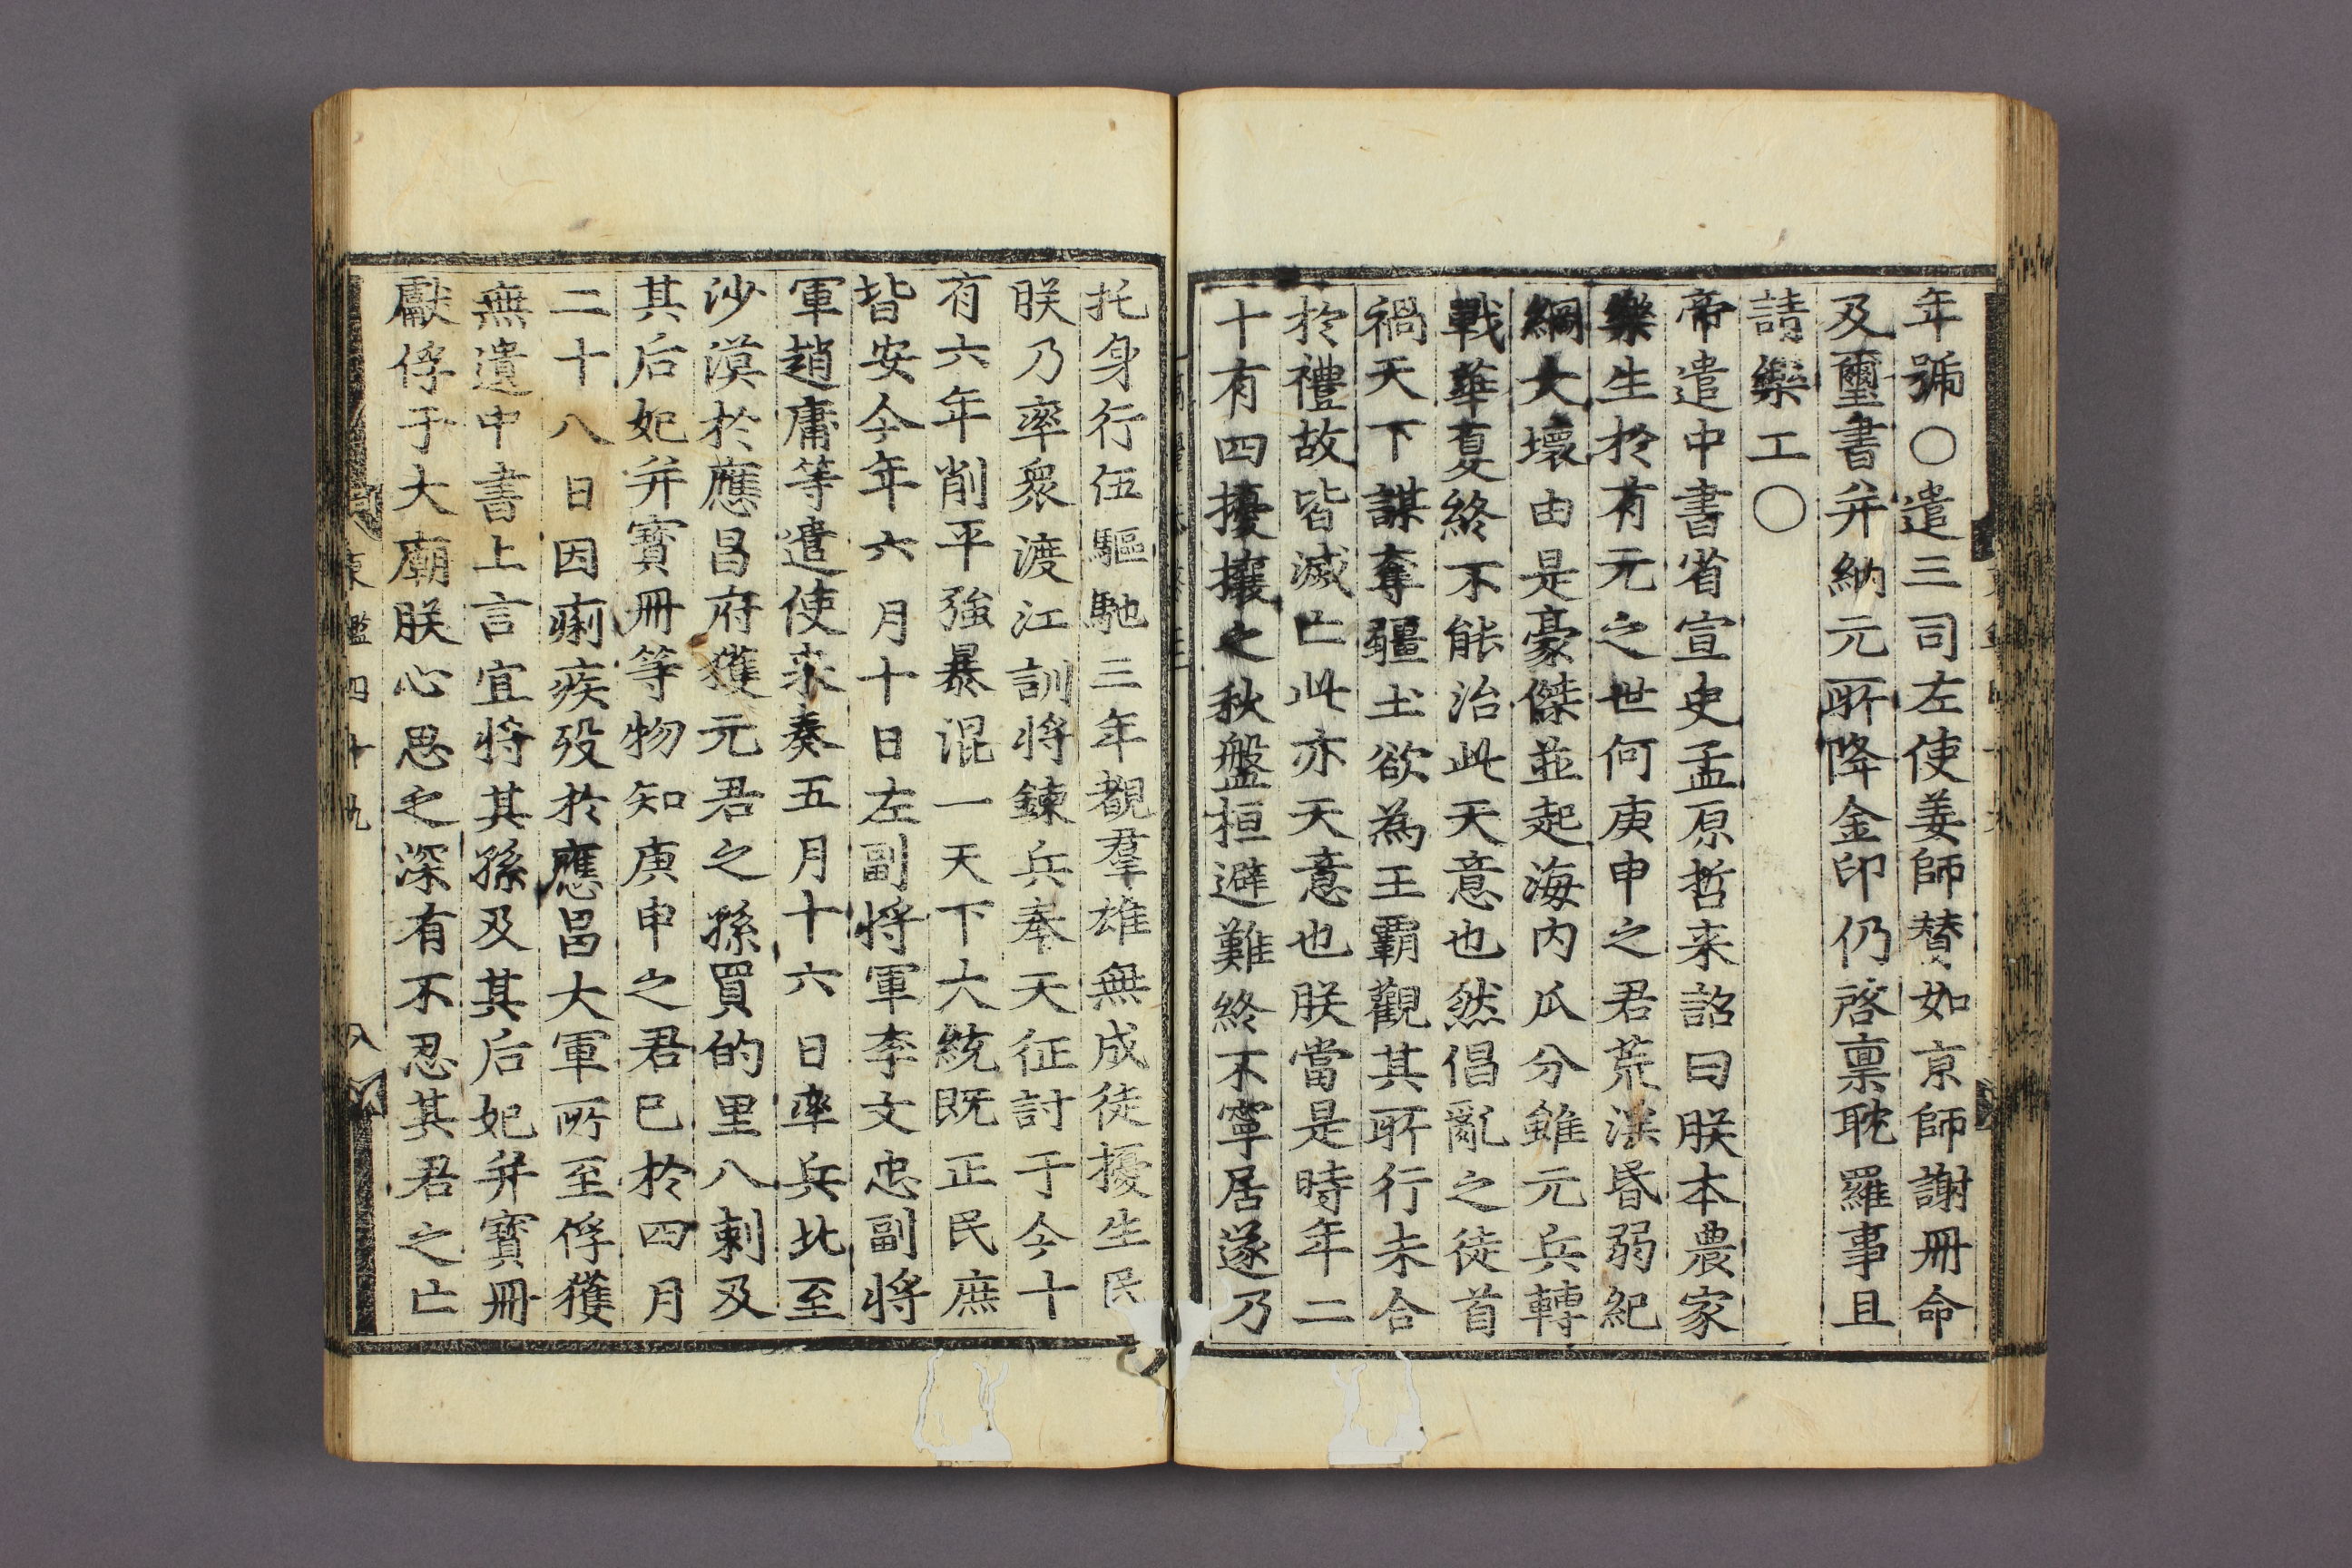 年號○遣三司左使姜師賛如京師謝冊命
及璽書并納元所降金印仍啓稟耽羅事且
請樂工○
帝遣中書省宣史孟原哲来詔曰朕本農家
樂生於有元之世何庚申之君荒淫昏弱紀
綱大壞由是豪傑並起海内瓜分雖元兵轉
戰華夏終不能治此天意也然倡亂之徒首
禍天下謀奪疆土欲為王霸觀其所行未合
於禮故皆滅亡此亦天意也朕當是時年二
十有四擾攘之秋盤桓避難終不寧居遂乃
托身行伍驅馳三年覩羣雄無成徒擾生民
朕乃率衆渡江訓將鍊兵奉天征討于今十
有六年削平強暴混一天下大統既正民庶
皆安今年六月十日左副將軍李文忠副將
軍趙庸等遣使來奏五月十六日率兵北至
沙漠於應昌府獲元君之孫買的里八剌及
其后妃并寶冊等物知庚申之君已於四月
二十八日因痢疾歿於應昌大軍所至俘獲
無遺中書上言宜將其孫及其后妃并寶冊
獻俘于大廟朕心思之深有不忍其君之亡
東鑑四十九
八